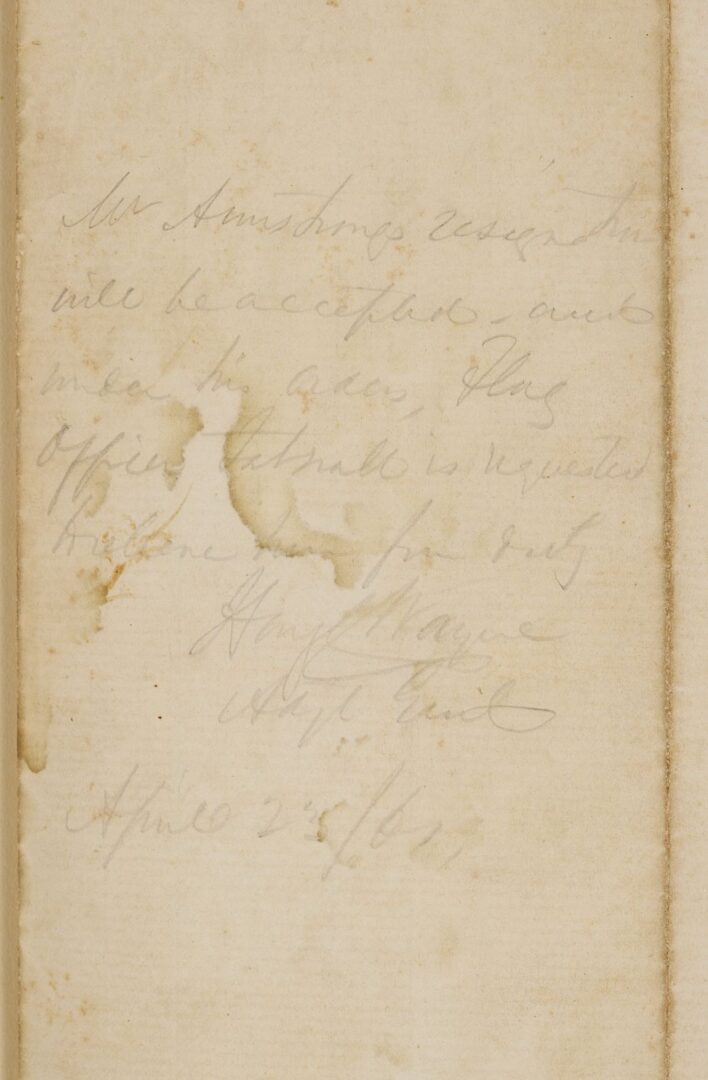 Mr Armstrongs resignation
will be accepted, and
under his orders, Flag
Officer Tatnall is requested
to relieve him from duty
Henry C Wayne
Adjt Genl
April 2d /61,